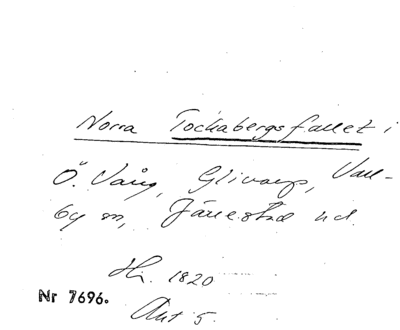 Norra Tockabergsfallet i
Ö. Vång, Glivarp, Vall-
by sn, Järrestad hd.
Hs. 1820
Nr 7696.
Akt 5.